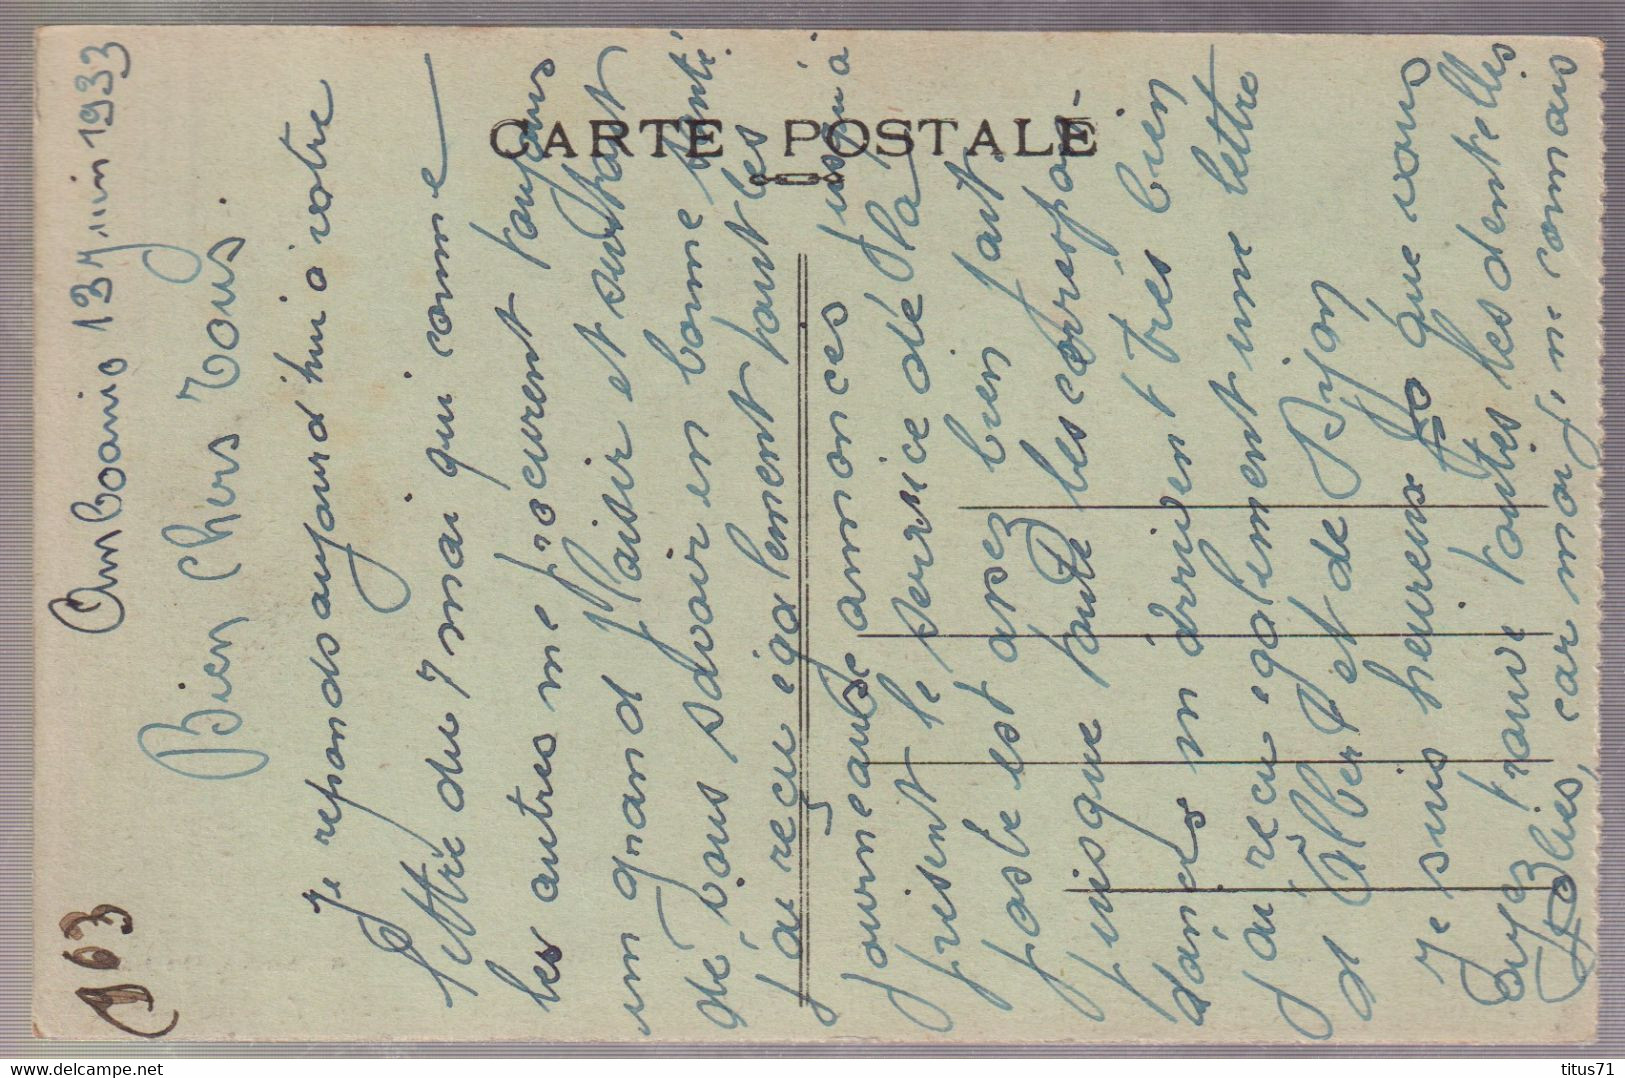 163
Amboanio 13 juin 1933
Bien chers Tous.
Je reponds aujourd'hui à votre
lettre du 7 mai qui comme
les autres me procurent toujours
un grand plaisir et surtout
de vous savoir en bonne santé
J'ai reçu également tout les
journeaux annonces jusqu'à
présent le service de la
poste est asez bien fait
puisque toute les correspon-
dances m'arrivent très bien
J'ai reçu egalement une lettre
d'Albert et de Dijon
Je suis heureux que vous
ayez trouvé toutes les dentelles
jolies, car moi j'm connais
CARTE POSTALE
titus71
delcampe.net